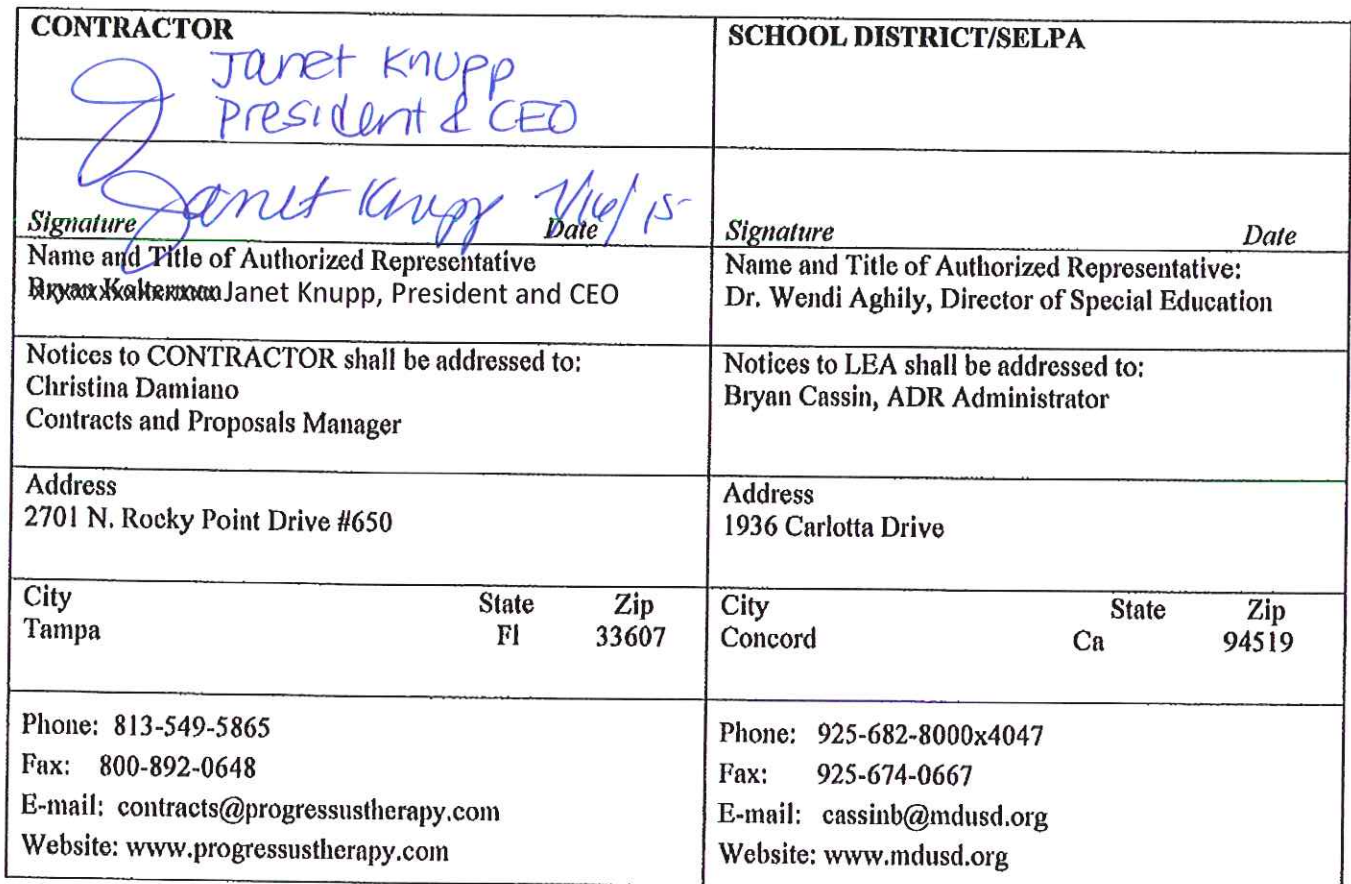 CONTRACTOR
Janet Knupp
President & CEO
Janet Knupp 7/16/15
Signature Date
Name and Title of Authorized Representative
Janet Knupp, President and CEO
Notices to CONTRACTOR shall be addressed to:
Christina Damiano
Contracts and Proposals Manager
Address
2701 N. Rocky Point Drive #650
City State Zip
Tampa Fl 33607
Phone: 813-549-5865
Fax: 800-892-0648
E-mail: contracts@progressustherapy.com
Website: www.progressustherapy.com
SCHOOL DISTRICT/SELPA
Signature Date
Name and Title of Authorized Representative:
Dr. Wendi Aghily, Director of Special Education
Notices to LEA shall be addressed to:
Bryan Cassin, ADR Administrator
Address
1936 Carlotta Drive
City State Zip
Concord Ca 94519
Phone: 925-682-8000x4047
Fax: 925-674-0667
E-mail: cassinb@mdusd.org
Website: www.mdusd.org